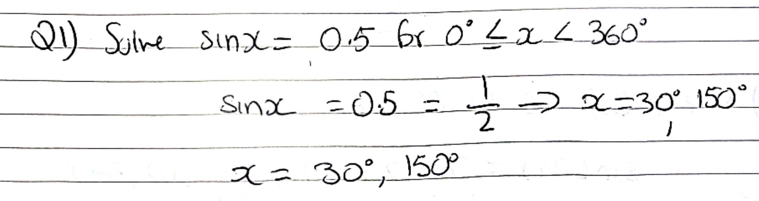 Q1) Solve sinx = 0.5 for 0° ≤ x < 360°
sinx = 0.5 = 1/2 ⇒ x = 30°, 150°
x = 30°, 150°